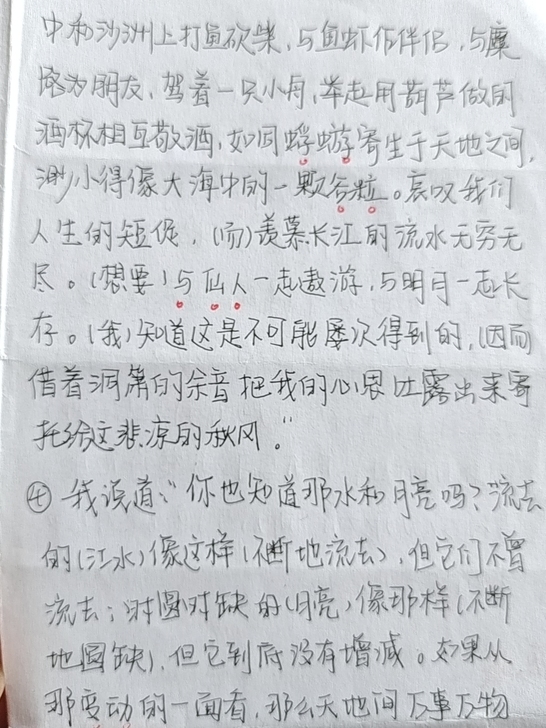 中和沙洲上打鱼砍柴，与鱼虾作伴侣，与麋
为朋友，驾着一只小舟，举起用葫芦做的
酒杯相互敬酒，如同蜉蝣寄生于天地之间，
渺小得像大海中的一颗谷粒。哀叹我们
人生的短促，（而）羡慕长江的流水无穷无
尽。（想要）与仙人一起遨游，与明月一起长
存。（我）知道这是不可能屡次得到的，（因而
借着洞箫的余音把我的心思吐露出来寄
托给这悲凉的秋风。”
④ 我说道：“你也知道那水和月亮吗？流去
的（江水）像这样（不断地流去），但它们不曾
流去；时圆时缺的（月亮）像那样（不断
地圆缺），但它到底没有增减。如果从
那变动的一面看，那么天地间万事万物